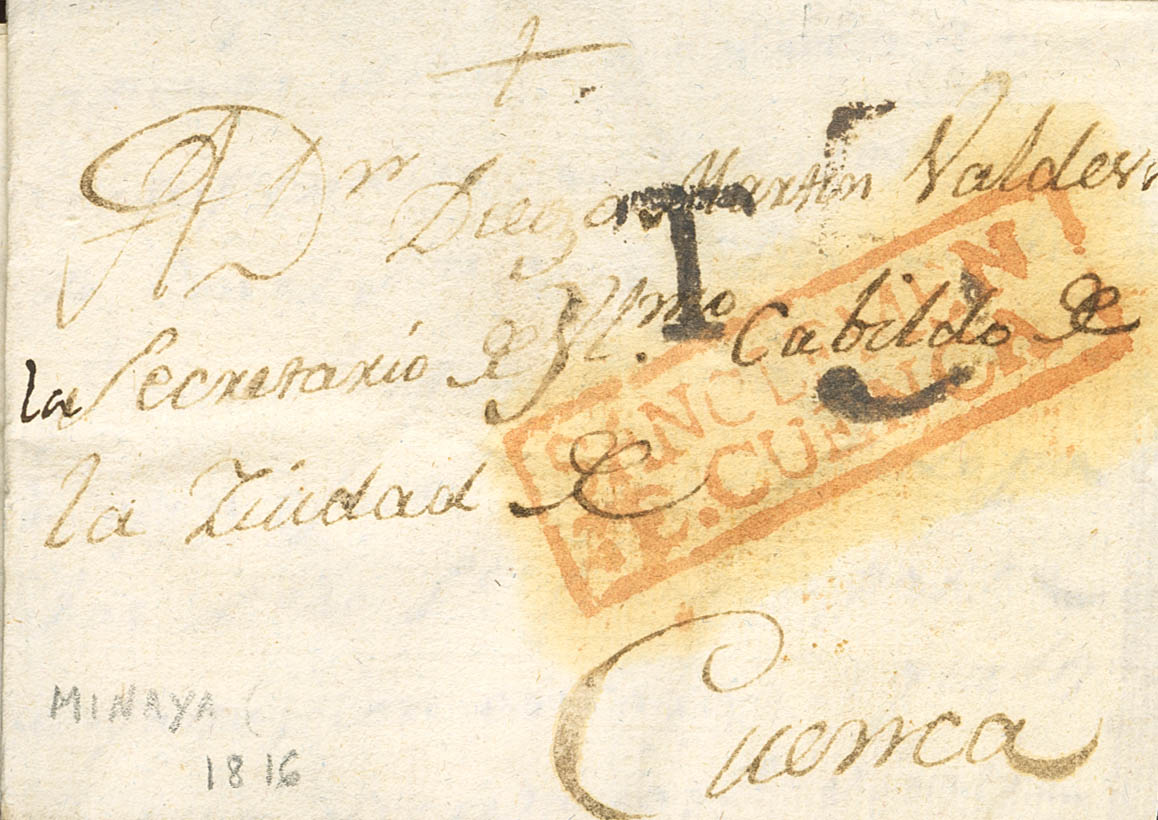 A Dn Diego Martin Valder
la Secretario de Yl.mo Cabildo de
la Ziudad de
Cuenca
S.CLEMEN
CUENCA
MINAYA
1816